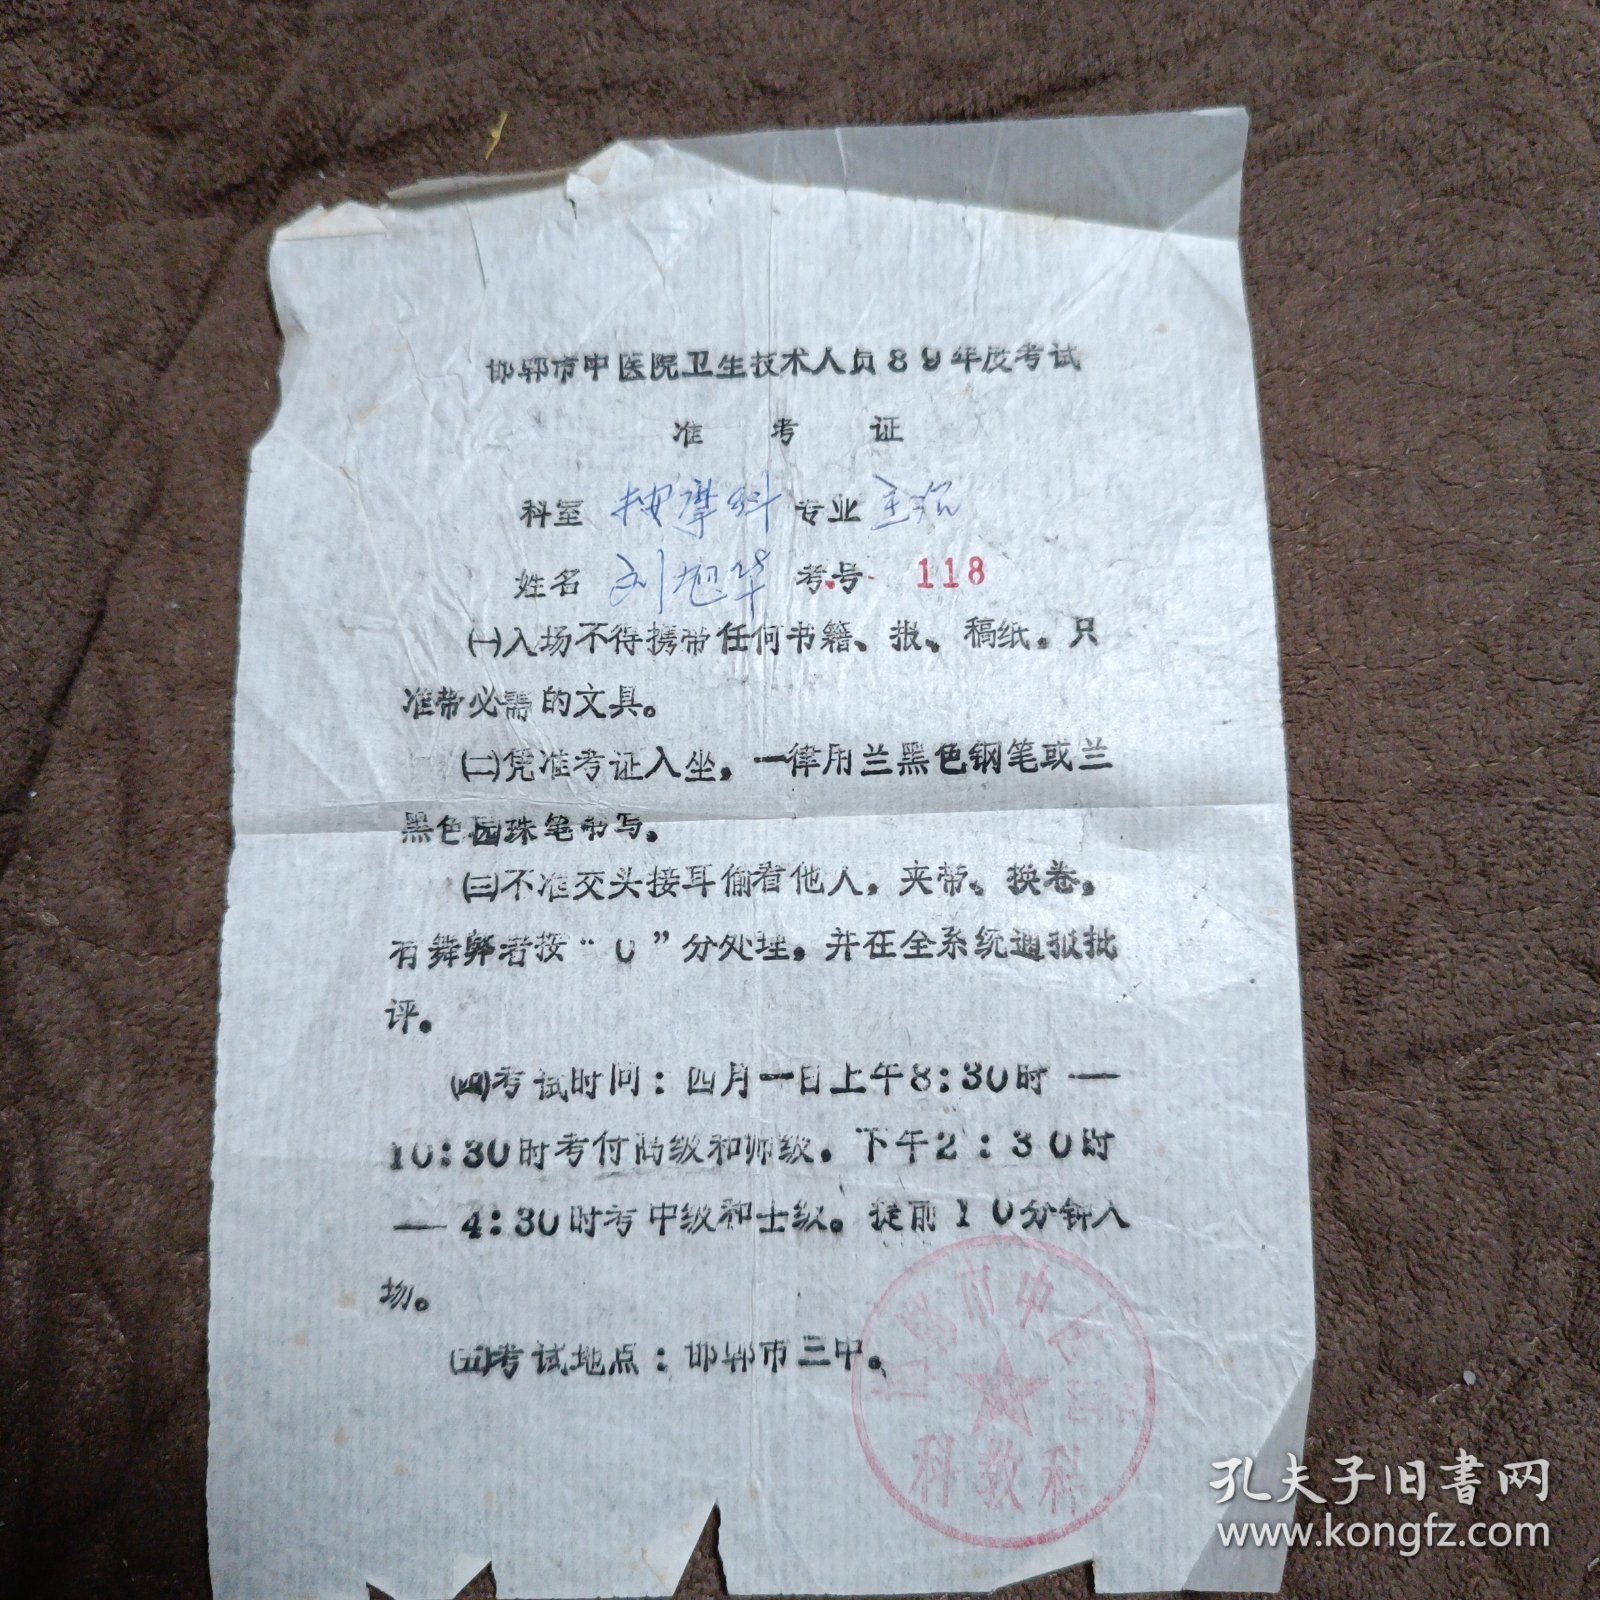 邯郸市中医院卫生技术人员89年度考试
准考证
科室 按摩科 专业 主治
姓名 刘旭华 考号 118
㈠入场不得携带任何书籍、报、稿纸。只
准带必需的文具。
㈡凭准考证入坐，一律用兰黑色钢笔或兰
黑色园珠笔书写。
㈢不准交头接耳偷看他人，夹带、换卷，
有舞弊者按“0”分处理，并在全系统通报批
评。
㈣考试时间：四月一日上午8:30时—
10:30时考付高级和师级。下午2:30时
—4:30时考中级和士级。提前10分钟入
场。
㈤考试地点：邯郸市三中。
市中
科教科
孔夫子旧书网
www.kongfz.com